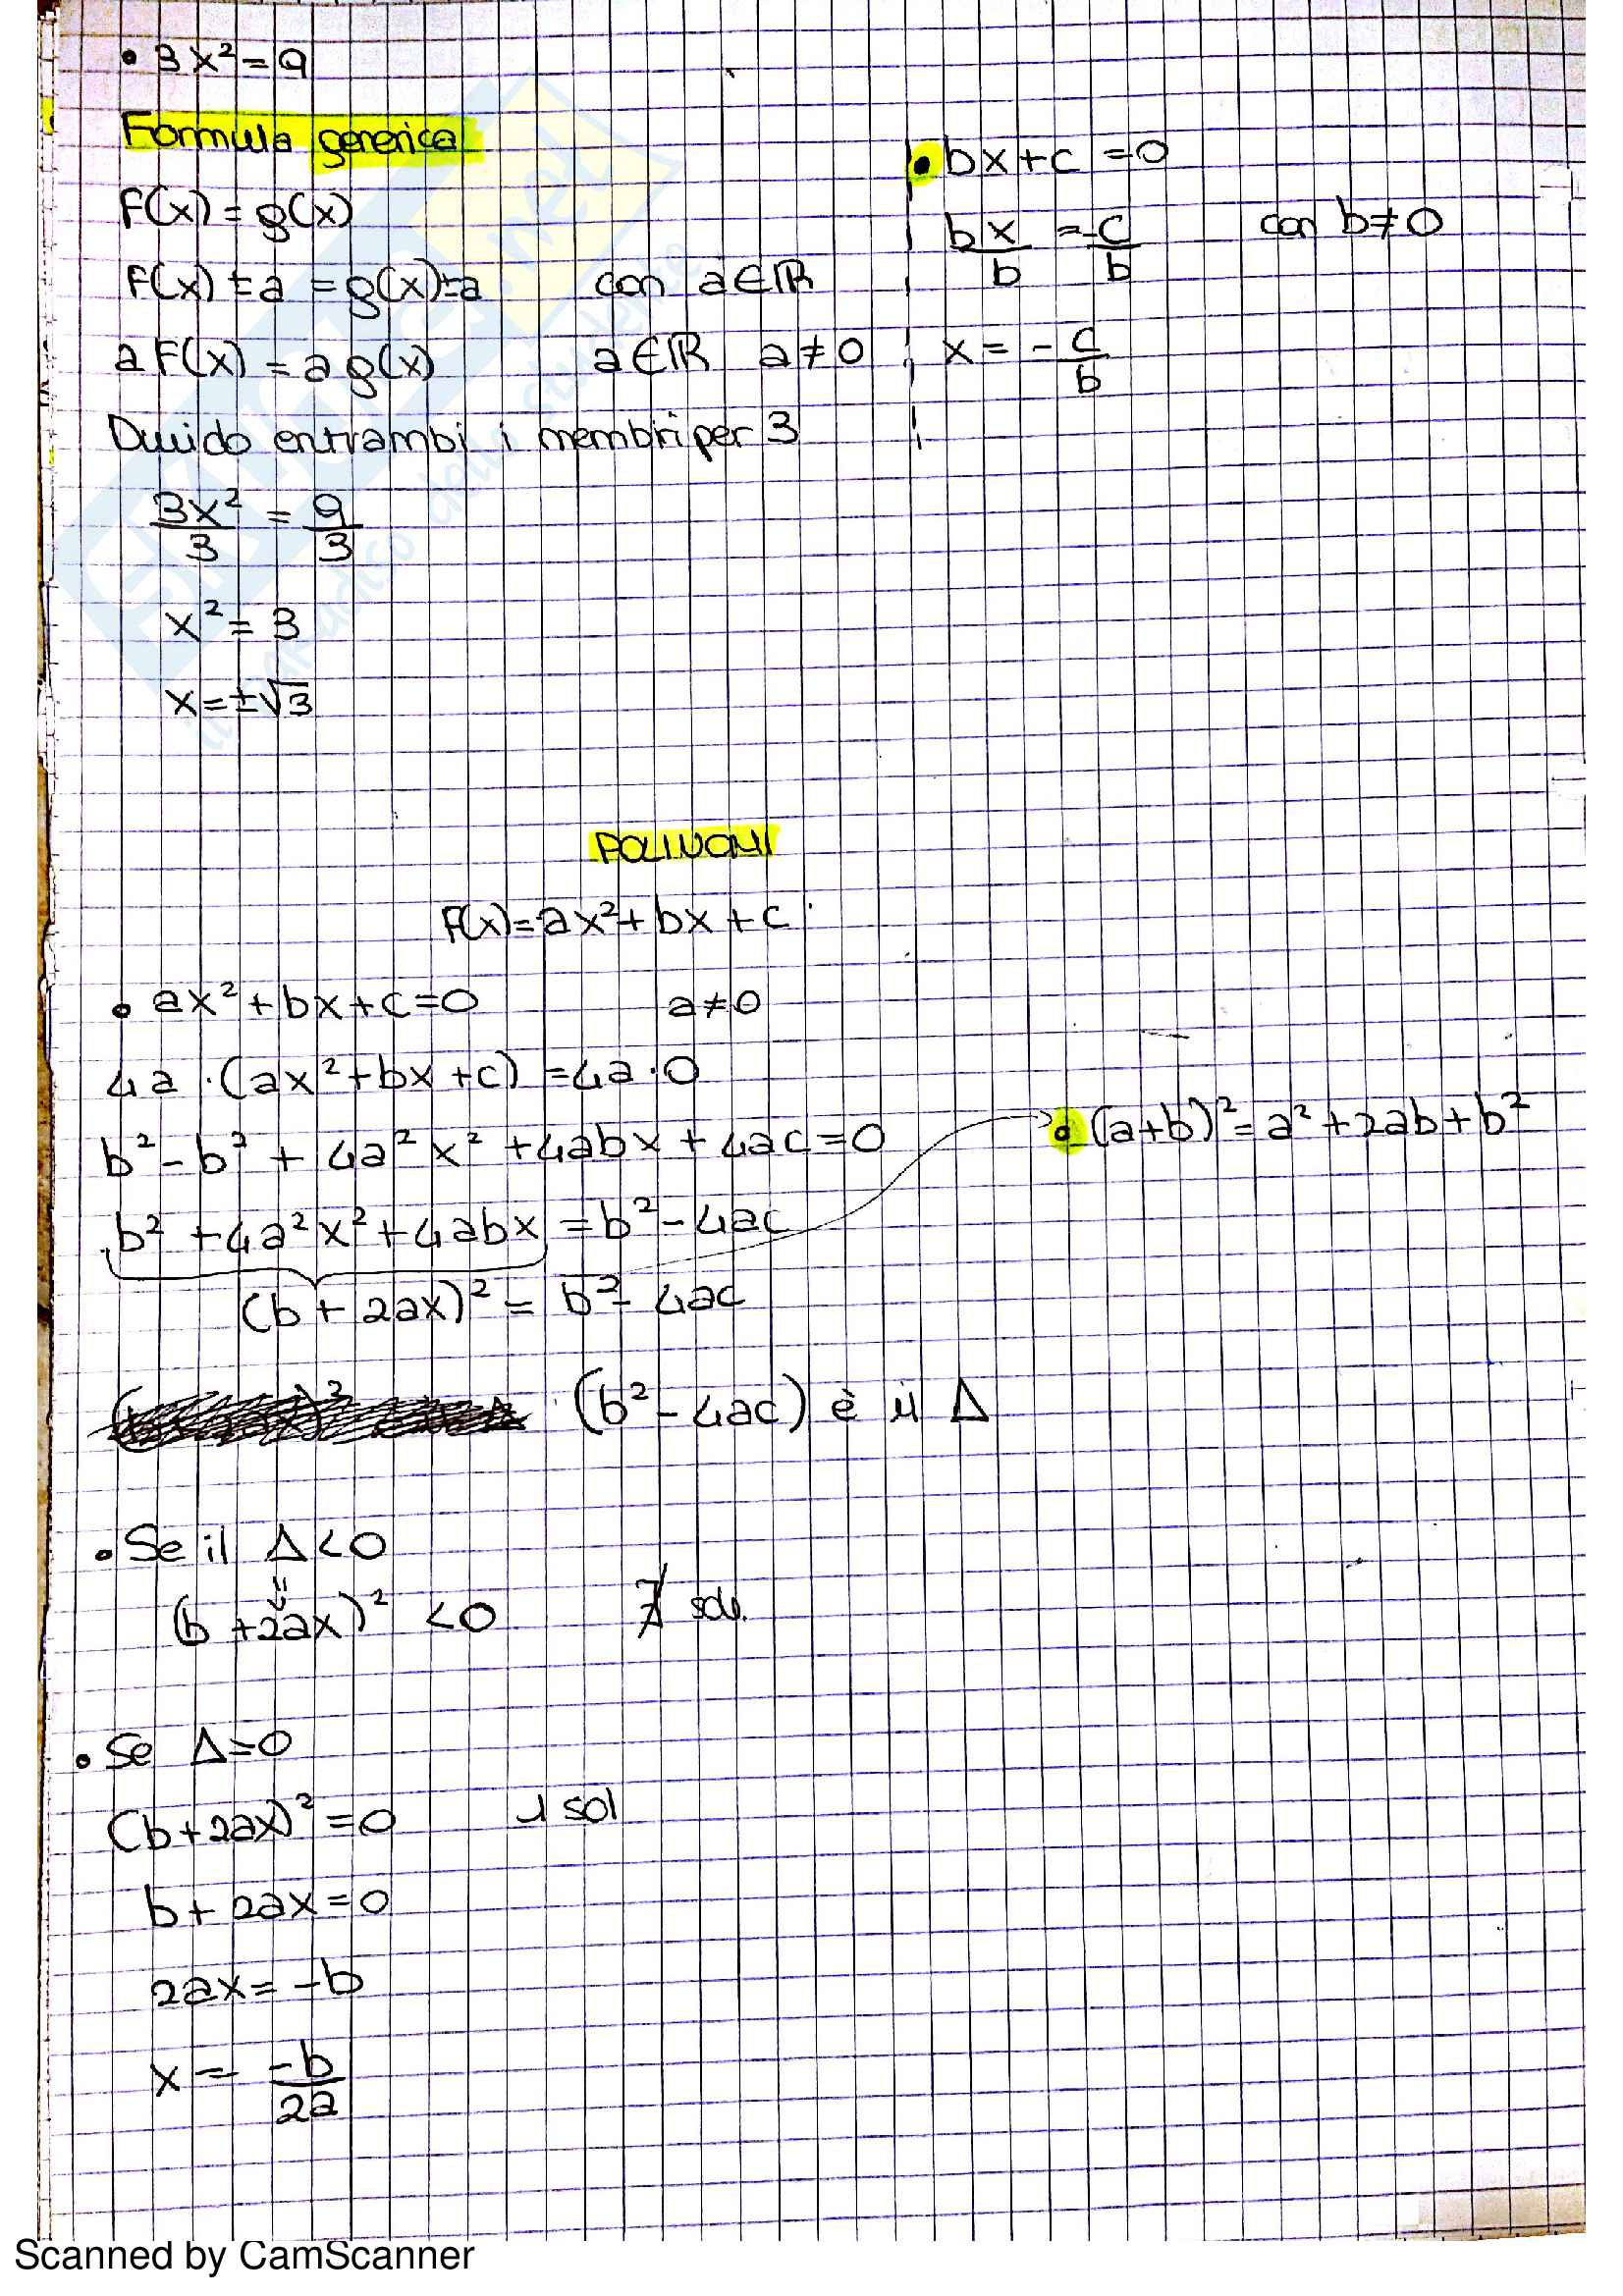 • 3x² = 9
Formula generica
f(x) = g(x)
f(x) ± a = g(x) ± a con a∈ℝ
a f(x) = a g(x) a∈ℝ a≠0
Divido entrambi i membri per 3
3x²/3 = 9/3
x² = 3
x = ±√3
• bx + c = 0
bx/b = -c/b con b≠0
x = -c/b
POLINOMI
f(x) = ax² + bx + c
• ax² + bx + c = 0 a≠0
4a · (ax² + bx + c) = 4a · 0
b² - b² + 4a²x² + 4abx + 4ac = 0
• (a+b)² = a² + 2ab + b²
b² + 4a²x² + 4abx = b² - 4ac
(b + 2ax)² = b² - 4ac
(b² - 4ac) è il Δ
• Se il Δ < 0
(b + 2ax)² < 0 ∄ sol.
• Se Δ = 0
(b + 2ax)² = 0 1 sol
b + 2ax = 0
2ax = -b
x = -b/2a
Scanned by CamScanner